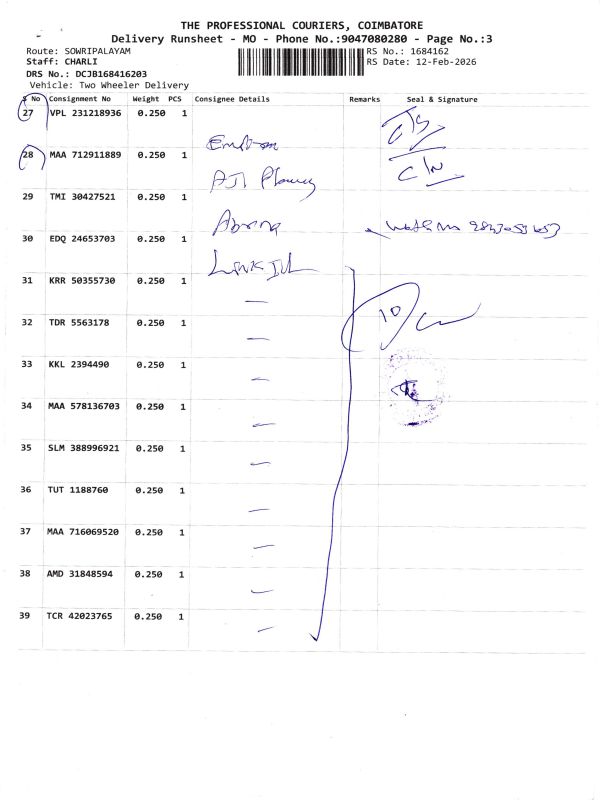 THE PROFESSIONAL COURIERS, COIMBATORE
Delivery Runsheet - MO - Phone No.:9047080280 - Page No.:3
Route: SOWRIPALAYAM RS No.: 1684162
Staff: CHARLI RS Date: 12-Feb-2026
DRS No.: DCJB168416203
Vehicle: Two Wheeler Delivery
S No Consignment No Weight PCS Consignee Details Remarks Seal & Signature
27 VPL 231218936 0.250 1
28 MAA 712911889 0.250 1
29 TMI 30427521 0.250 1
30 EDQ 24653703 0.250 1
31 KRR 50355730 0.250 1
32 TDR 5563178 0.250 1
10
33 KKL 2394490 0.250 1
34 MAA 578136703 0.250 1
35 SLM 388996921 0.250 1
36 TUT 1188760 0.250 1
37 MAA 716069520 0.250 1
38 AMD 31848594 0.250 1
39 TCR 42023765 0.250 1